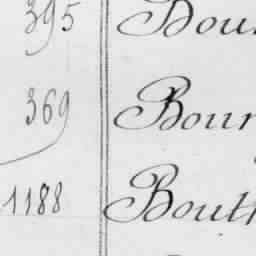 395 Bou
369 Bour
1188 Bouth